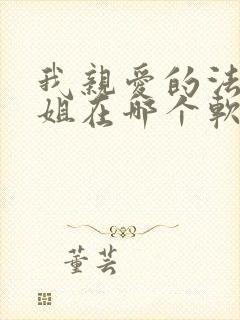 我親愛的法
姐在哪个軟
董芸